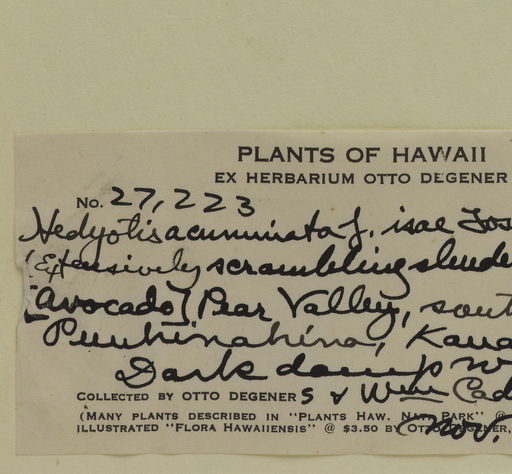 PLANTS OF HAWAII
EX HERBARIUM OTTO DEGENER
No. 27,223
Hedyotis acuminata f.
(Extensively scrambling slende
[avocado] Pear Valley, sout
Puuhinahina, Kaua
Dark damp w
COLLECTED BY OTTO DEGENERS & Wm Cad
(MANY PLANTS DESCRIBED IN "PLANTS HAW. NATL. PARK" @
ILLUSTRATED "FLORA HAWAIIENSIS" @ $3.50 BY OTTO DEGENER,
Nov.